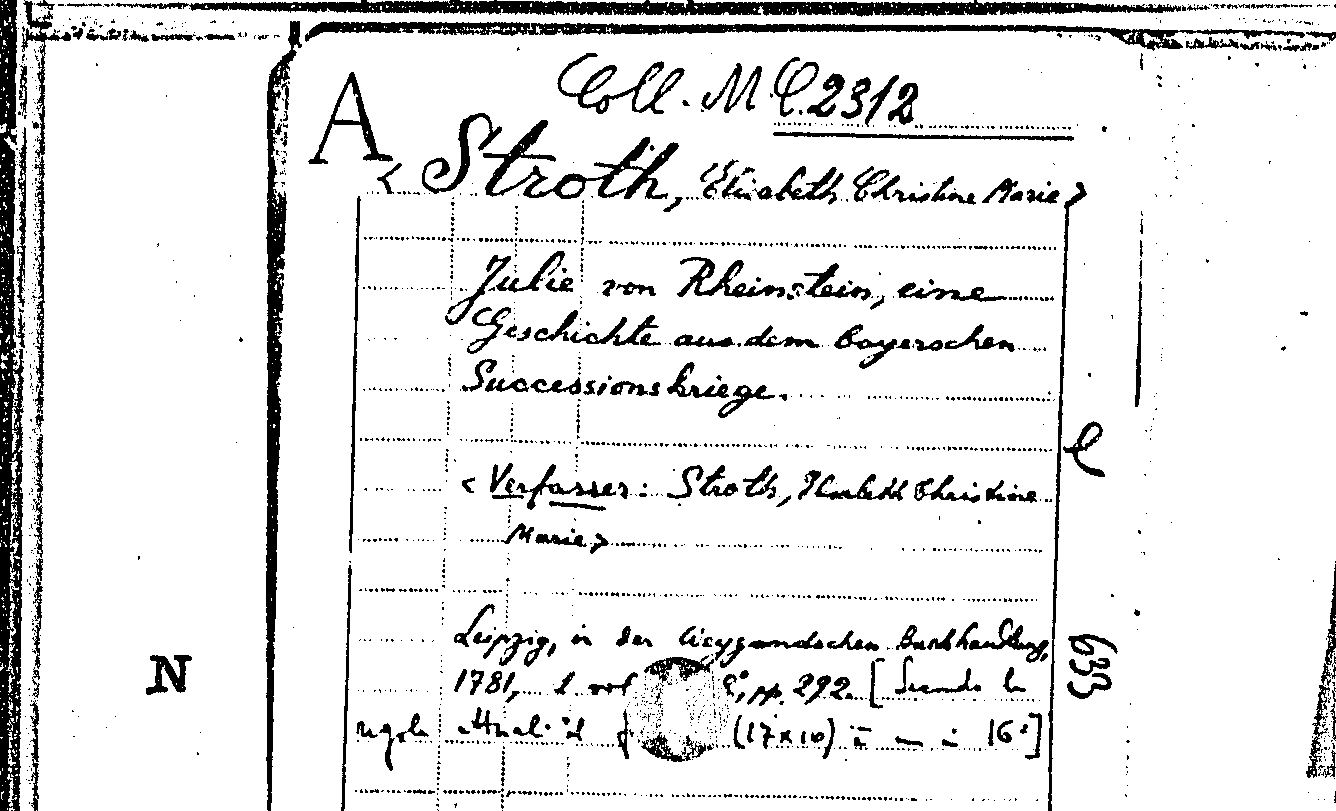 Coll. M.C. 2312
A
< Stroth, Elisabeth Christine Marie >
Julie von Rheinstein, eine
Geschichte aus dem bayerschen
Successionskriege.
e
< Verfasser: Stroth, Elisabeth Christine
Marie >
Leipzig, in der Weygandschen Buchhandlung,
633
N
1781, 1 vol 8°, pp. 292. [Secondo le
regole attuali il (17x10) è un in 16°]